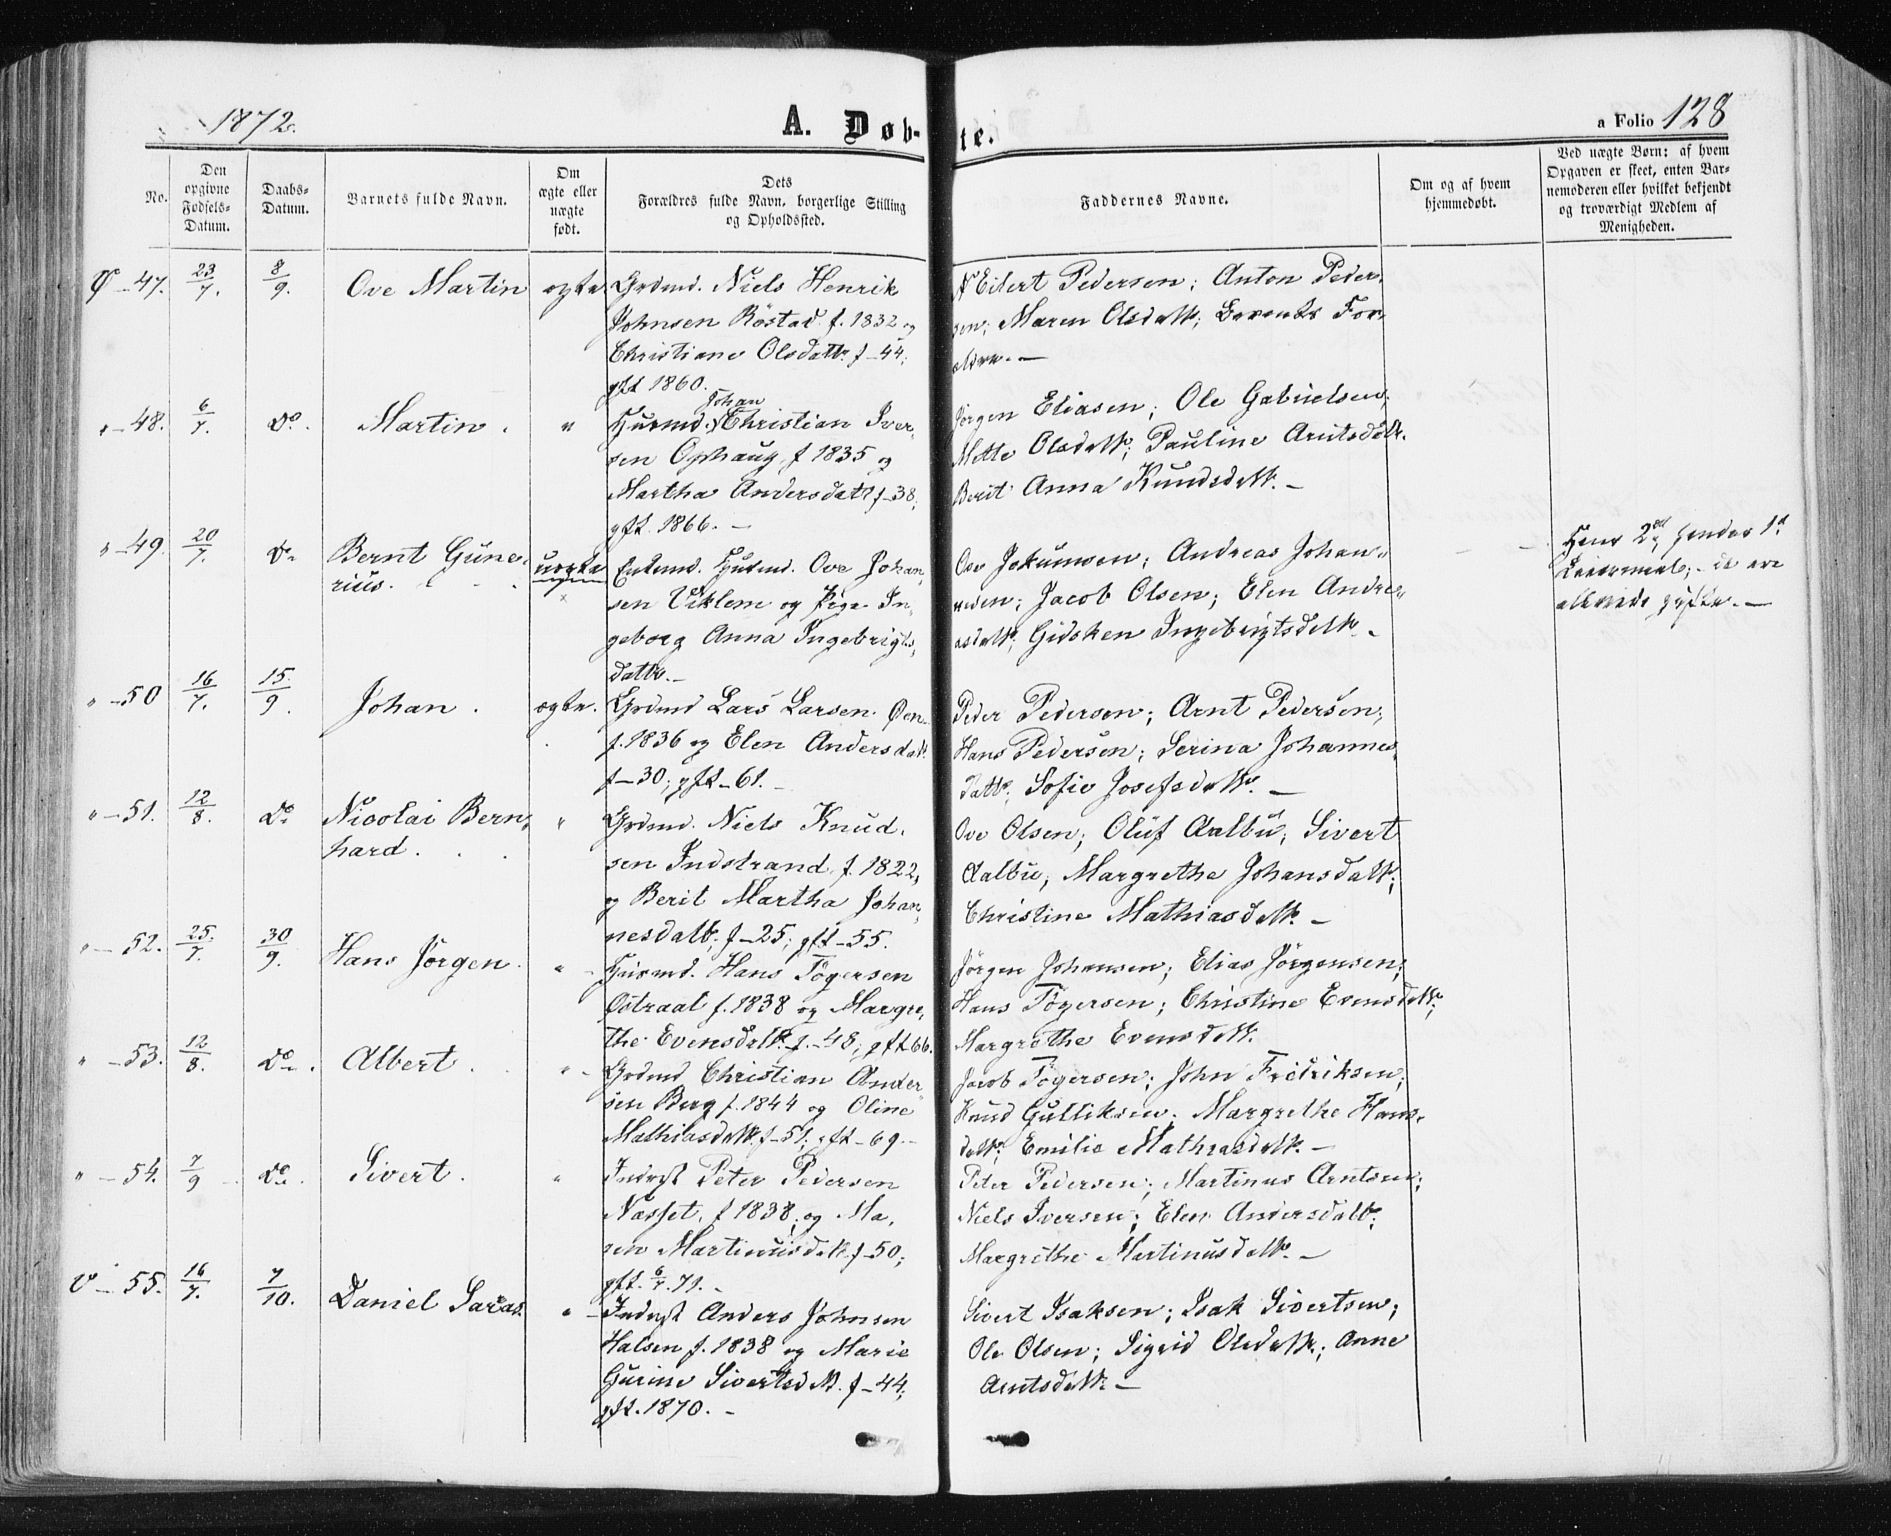 1872.
A. Døb-
te.
a Folio 128
No.
Den
opgivne
Fødsels-
Datum.
Daabs-
Datum.
Barnets fulde Navn.
Om
ægte eller
uægte
født.
Dets
Forældres fulde Navn, borgerlige Stilling
og Opholdssted.
Faddernes Navne.
Om og af hvem
hjemmedøbt.
Ved uægte Børn: af hvem
Opgaven er skeet, enten Bar-
nemoderen eller hvilket bekjendt
og troværdigt Medlem af
Menigheden.
Ø -47. 23/7. 8/9. Ove Martin ægte
Grdmd. Niels Henrik
Johnsen Röstad f. 1832 og
Christiane Olsdattr f-44;
gft 1860.
Eilert Pedersen; Anton Peder-
sen; Maren Olsdattr; Barnets For-
ældre. —
"-48. 6/7. do. Martin. "
Johan
Husmd. Christian Iver-
sen Ophaug f 1835 og
Martha Andersdatt f-38,
gft. 1866. —
Jørgen Eliasen; Ole Gabrielsen;
Mette Olsdattr; Pauline Arntsdattr.
Berit Anna Knudsdattr. —
"-49. 20/7. do Bernt Gune-
rius. uægte
Enkemd. Husmd. Ove Johan-
sen Viklem og Pige In-
geborg Anna Ingebrigts-
dattr. —
Ove Johansen; Andreas Johan-
nesen; Jacob Olsen; Elen Andre-
asdattr; Gidsken Ingebrigtsdattr. —
Hans 2d, hendes 1ste
Leiermaal; - de ere
allerede gifte. —
"-50 16/7. 15/9. Johan. ægte.
Grdmd Lars Larsen Øen
f. 1836 og Elen Andersdatt
f-30; gft-61. —
Peder Pedersen; Arnt Pedersen;
Hans Pedersen; Serina Johannes-
datt; Sofie Josefsdattr. —
"-51. 12/8. do Nicolai Bern-
hard. "
Grdmd. Niels Knud-
sen Indstrand f. 1822,
og Berit Martha Johan-
nesdatt. f-25; gft-55.
Ove Olsen; Oluf Aalbu; Sivert
Aalbu; Margrethe Johansdatt;
Christine Mathiasdattr. —
"-52. 25/7. 30/9. Hans Jørgen. "
Husmd. Hans Tøgersen
Østraat f. 1838 og Margre-
the Evensdatt. f-48; gft 66.
Jørgen Johansen; Elias Jørgensen;
Hans Tøgersen; Christine Evensdatt;
Margrethe Evensdatt.
"-53. 12/8. do. Albert. "
Grdmd Christian Ander-
sen Berg f. 1844 og Oline
Mathiasdatt. f-51; gft-69. —
Jacob Tøgersen; John Fredriksen;
Knud Gulliksen. Margrethe Hans-
datt; Emilie Mathiasdatt. —
"-54. 7/9 do. Sivert. "
Indrst Peter Pedersen
Næsset, f 1838, og Ma-
ren Martinusdatt f-50;
gft. 6/7. 71. —
Peter Pedersen; Martinus Arntsen;
Niels Iversen; Elen Andersdatt;
Margrethe Martinusdatt. —
V -55. 16/7. 7/10. Daniel "
Indrst Anders Johnsen
Halsen f. 1838 og Marie
Gurine Sivertsdatt. f-44;
gft. 1870. —
Sivert Isaksen; Isak Sivertsen;
Ole Olsen; Sigrid Olsdattr; Anne
Arntsdatt. —